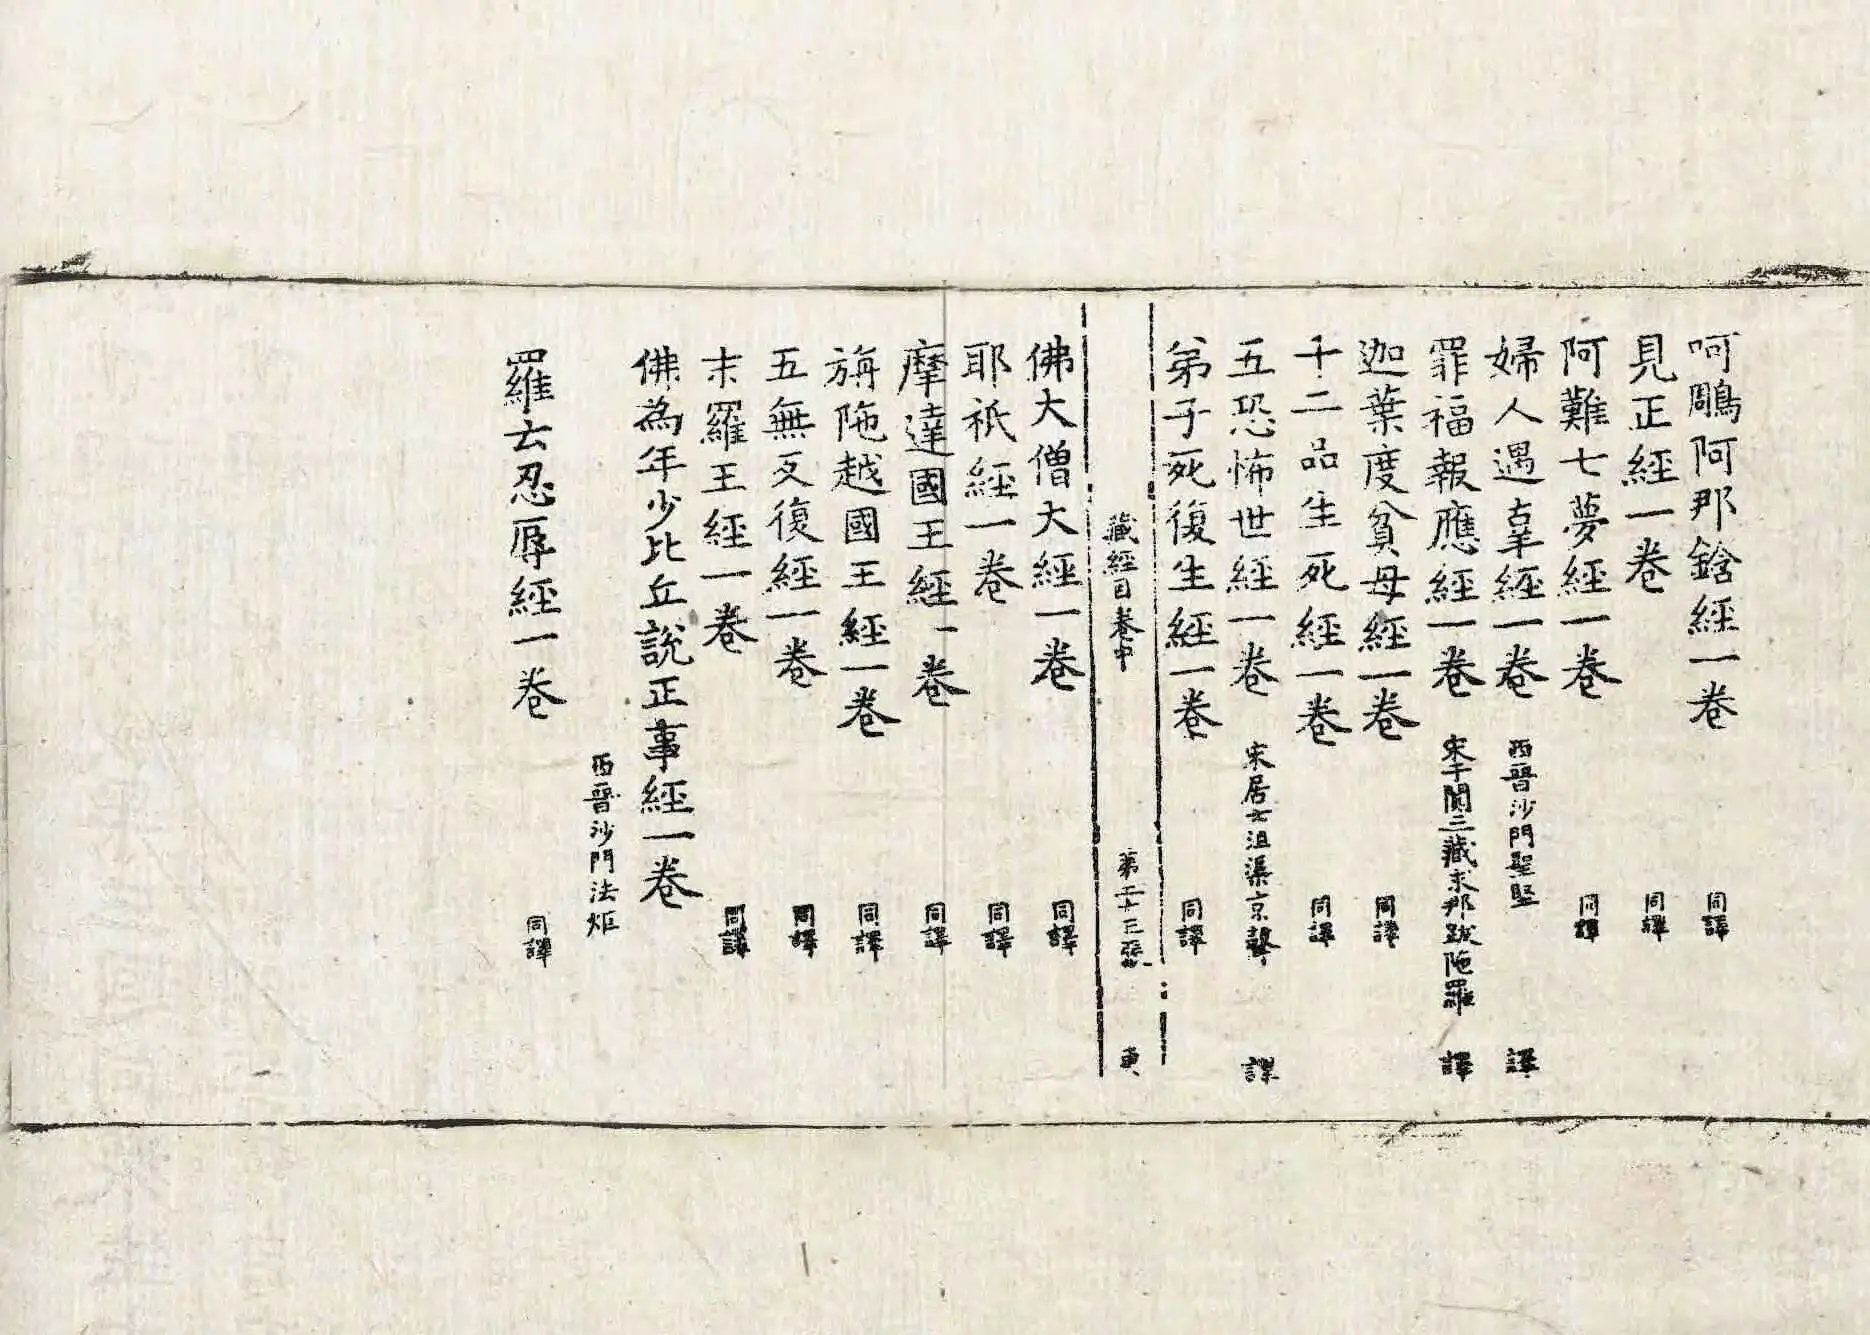 呵鵰阿那鋡經一卷 同譯
見正經一卷 同譯
阿難七夢經一卷 同譯
婦人遇辜經一卷 西晉沙門聖堅 譯
罪福報應經一卷 宋于闐三藏求那跋陁羅 譯
迦葉度貧母經一卷 同譯
十二品生死經一卷 同譯
五恐怖世經一卷 宋居士沮渠京聲 譯
弟子死復生經一卷 同譯
藏經目卷中 第二十三張 更
佛大僧大經一卷 同譯
耶祇經一卷 同譯
摩達國王經一卷 同譯
旃陁越國王經一卷 同譯
五無反復經一卷 同譯
末羅王經一卷 同譯
佛為年少比丘說正事經一卷
西晉沙門法炬
羅云忍辱經一卷 同譯